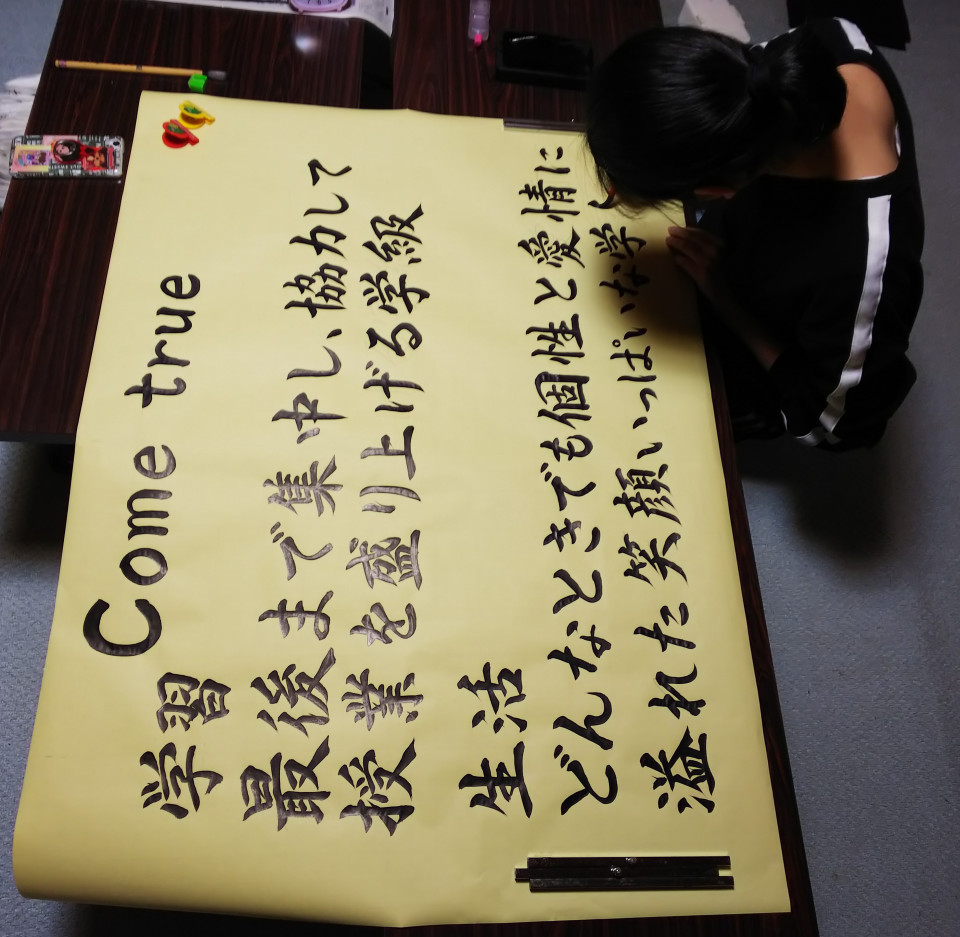 Come true
学習
最後まで集中し、協力して
授業を盛り上げる学級
生活
どんなときでも個性と愛情に
溢れた笑顔いっぱいな学